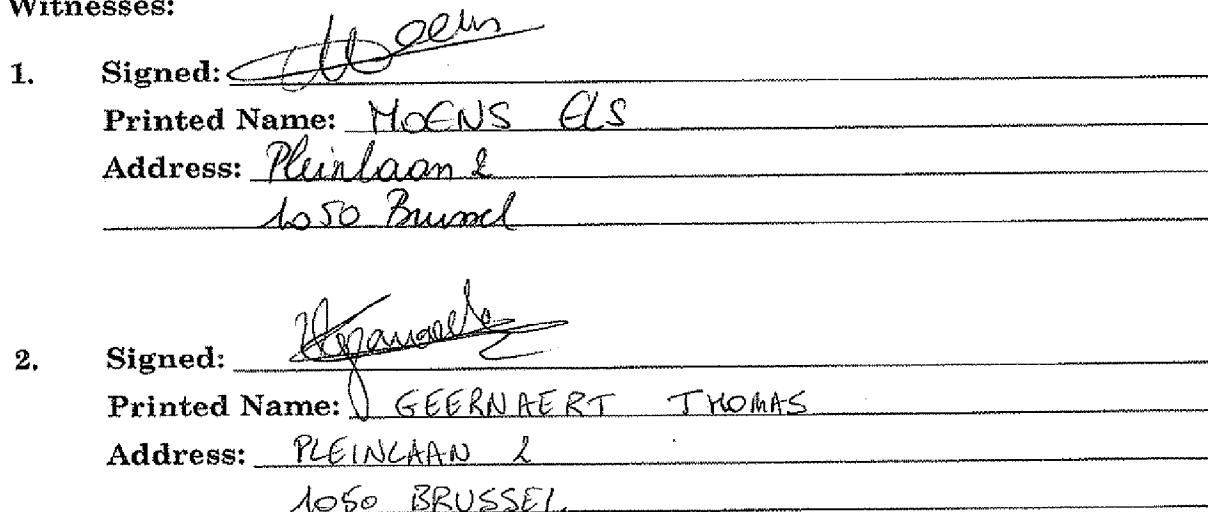 Witnesses:
1. Signed: Moens
Printed Name: MOENS ELS
Address: Pleinlaan 2
1050 Brussel
2. Signed:
Printed Name: GEERNAERT THOMAS
Address: PLEINLAAN 2
1050 BRUSSEL